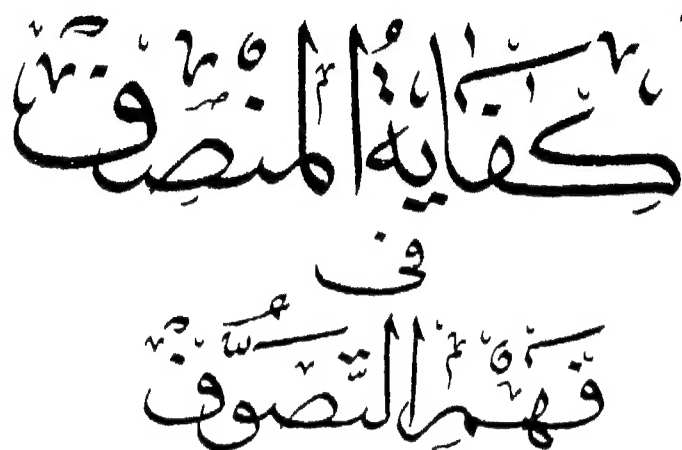 كِفَايَةُ الْمُنْصِفِ
فى
فَهْمِ التَّصَوُّفِ